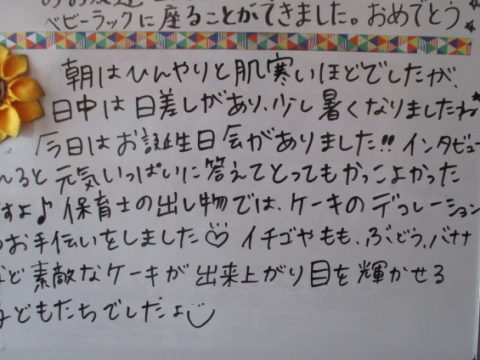 ベビーラックに座ることができました。おめでとう
朝はひんやりと肌寒いほどでしたが、
日中は日差しがあり、少し暑くなりましたね
今日はお誕生日会がありました!! インタビュー
ると元気いっぱいに答えてとってもかっこよかった
すよ♪ 保育士の出し物では、ケーキのデコレーション
お手伝いをしました♡ イチゴやもも、ぶどう、バナナ
ど素敵なケーキが出来上がり目を輝かせる
どもたちでしたよ